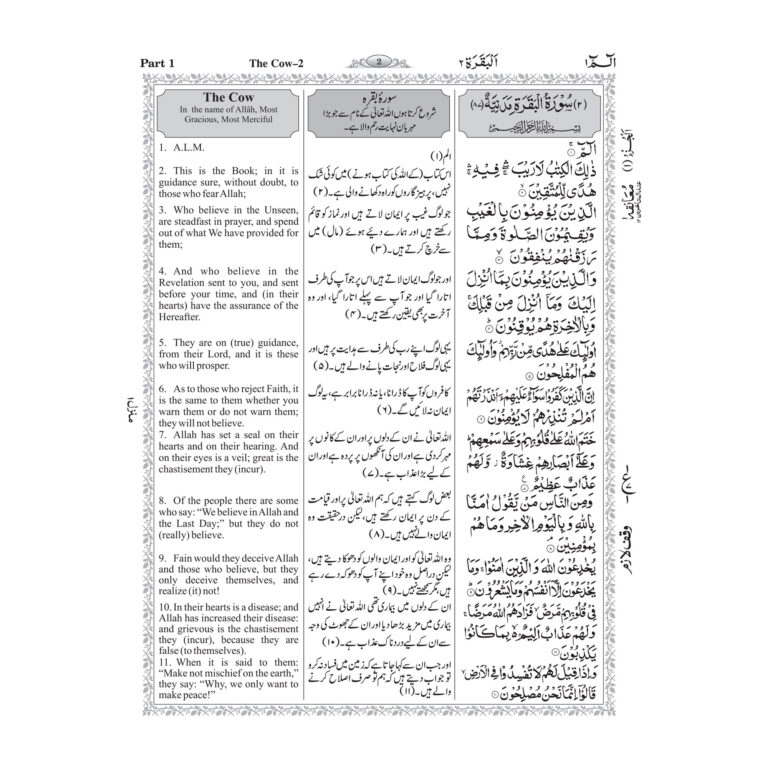 Part 1
The Cow–2
2
اَلْبَقَرَة ٢
الٓمّٓ ١
The Cow
In the name of Allâh, Most
Gracious, Most Merciful
1. A.L.M.
2. This is the Book; in it is
guidance sure, without doubt, to
those who fear Allah;
3. Who believe in the Unseen,
are steadfast in prayer, and spend
out of what We have provided for
them;
4. And who believe in the
Revelation sent to you, and sent
before your time, and (in their
hearts) have the assurance of the
Hereafter.
5. They are on (true) guidance,
from their Lord, and it is these
who will prosper.
6. As to those who reject Faith, it
is the same to them whether you
warn them or do not warn them;
they will not believe.
7. Allah has set a seal on their
hearts and on their hearing. And
on their eyes is a veil; great is the
chastisement they (incur).
8. Of the people there are some
who say: “We believe in Allah and
the Last Day;” but they do not
(really) believe.
9. Fain would they deceive Allah
and those who believe, but they
only deceive themselves, and
realize (it) not!
10. In their hearts is a disease; and
Allah has increased their disease:
and grievous is the chastisement
they (incur), because they are
false (to themselves).
11. When it is said to them:
“Make not mischief on the earth,”
they say: “Why, we only want to
make peace!”
سورۂ بقرہ
شروع کرتا ہوں اللہ تعالیٰ کے نام سے جو بڑا
مہربان نہایت رحم والا ہے۔
الم (۱)
اس کتاب (کے اللہ کی کتاب ہونے) میں کوئی شک
نہیں، پرہیزگاروں کو راہ دکھانے والی ہے۔ (۲)
جو لوگ غیب پر ایمان لاتے ہیں اور نماز کو قائم
رکھتے ہیں اور ہمارے دیئے ہوئے (مال) میں
سے خرچ کرتے ہیں۔ (۳)
اور جو لوگ ایمان لاتے ہیں اس پر جو آپ کی طرف
اتارا گیا اور جو آپ سے پہلے اتارا گیا، اور وہ
آخرت پر بھی یقین رکھتے ہیں۔ (۴)
یہی لوگ اپنے رب کی طرف سے ہدایت پر ہیں اور
یہی لوگ فلاح اور نجات پانے والے ہیں۔ (۵)
کافروں کو آپ کا ڈرانا، یا نہ ڈرانا برابر ہے، یہ لوگ
ایمان نہ لائیں گے۔ (۶)
اللہ تعالیٰ نے ان کے دلوں پر اور ان کے کانوں پر
مہر کردی ہے اور ان کی آنکھوں پر پردہ ہے اور ان
کے لیے بڑا عذاب ہے۔ (۷)
بعض لوگ کہتے ہیں کہ ہم اللہ تعالیٰ پر اور قیامت
کے دن پر ایمان رکھتے ہیں، لیکن درحقیقت وہ
ایمان والے نہیں ہیں۔ (۸)
وہ اللہ تعالیٰ کو اور ایمان والوں کو دھوکا دیتے ہیں،
لیکن دراصل وہ خود اپنے آپ کو دھوکہ دے رہے
ہیں، مگر سمجھتے نہیں۔ (۹)
ان کے دلوں میں بیماری تھی اللہ تعالیٰ نے انہیں
بیماری میں مزید بڑھا دیا اور ان کے جھوٹ کی وجہ
سے ان کے لیے دردناک عذاب ہے۔ (۱۰)
اور جب ان سے کہا جاتا ہے کہ زمین میں فساد نہ کرو
تو جواب دیتے ہیں کہ ہم تو صرف اصلاح کرنے
والے ہیں۔ (۱۱)
(٢) سُوْرَةُ الْبَقَرَةِ مَدَنِيَّةٌ (٨٧)
بِسْمِ اللهِ الرَّحْمٰنِ الرَّحِيْمِ
الٓمّٓ ۝
ذٰلِكَ الْكِتٰبُ لَا رَيْبَ ۛ فِيْهِ ۛ
هُدًى لِّلْمُتَّقِيْنَ ۝
الَّذِيْنَ يُؤْمِنُوْنَ بِالْغَيْبِ
وَيُقِيْمُوْنَ الصَّلٰوةَ وَمِمَّا
رَزَقْنٰهُمْ يُنْفِقُوْنَ ۝
وَالَّذِيْنَ يُؤْمِنُوْنَ بِمَآ اُنْزِلَ
اِلَيْكَ وَمَآ اُنْزِلَ مِنْ قَبْلِكَ
وَبِالْاٰخِرَةِ هُمْ يُوْقِنُوْنَ ۝
اُولٰٓئِكَ عَلٰى هُدًى مِّنْ رَّبِّهِمْ وَاُولٰٓئِكَ
هُمُ الْمُفْلِحُوْنَ ۝
اِنَّ الَّذِيْنَ كَفَرُوْا سَوَآءٌ عَلَيْهِمْ ءَاَنْذَرْتَهُمْ
اَمْ لَمْ تُنْذِرْهُمْ لَا يُؤْمِنُوْنَ ۝
خَتَمَ اللهُ عَلٰى قُلُوْبِهِمْ وَعَلٰى سَمْعِهِمْ
وَعَلٰٓى اَبْصَارِهِمْ غِشَاوَةٌ وَّلَهُمْ
عَذَابٌ عَظِيْمٌ ۝
وَمِنَ النَّاسِ مَنْ يَّقُوْلُ اٰمَنَّا
بِاللهِ وَبِالْيَوْمِ الْاٰخِرِ وَمَا هُمْ
بِمُؤْمِنِيْنَ ۝
يُخٰدِعُوْنَ اللهَ وَالَّذِيْنَ اٰمَنُوْا وَمَا
يَخْدَعُوْنَ اِلَّآ اَنْفُسَهُمْ وَمَا يَشْعُرُوْنَ ۝
فِيْ قُلُوْبِهِمْ مَّرَضٌ فَزَادَهُمُ اللهُ مَرَضًا
وَلَهُمْ عَذَابٌ اَلِيْمٌ بِمَا كَانُوْا
يَكْذِبُوْنَ ۝
وَاِذَا قِيْلَ لَهُمْ لَا تُفْسِدُوْا فِي الْاَرْضِ
قَالُوْٓا اِنَّمَا نَحْنُ مُصْلِحُوْنَ ۝
اَلْجُزْءُ (١)
معانقه
وقف لازم
منزل ١